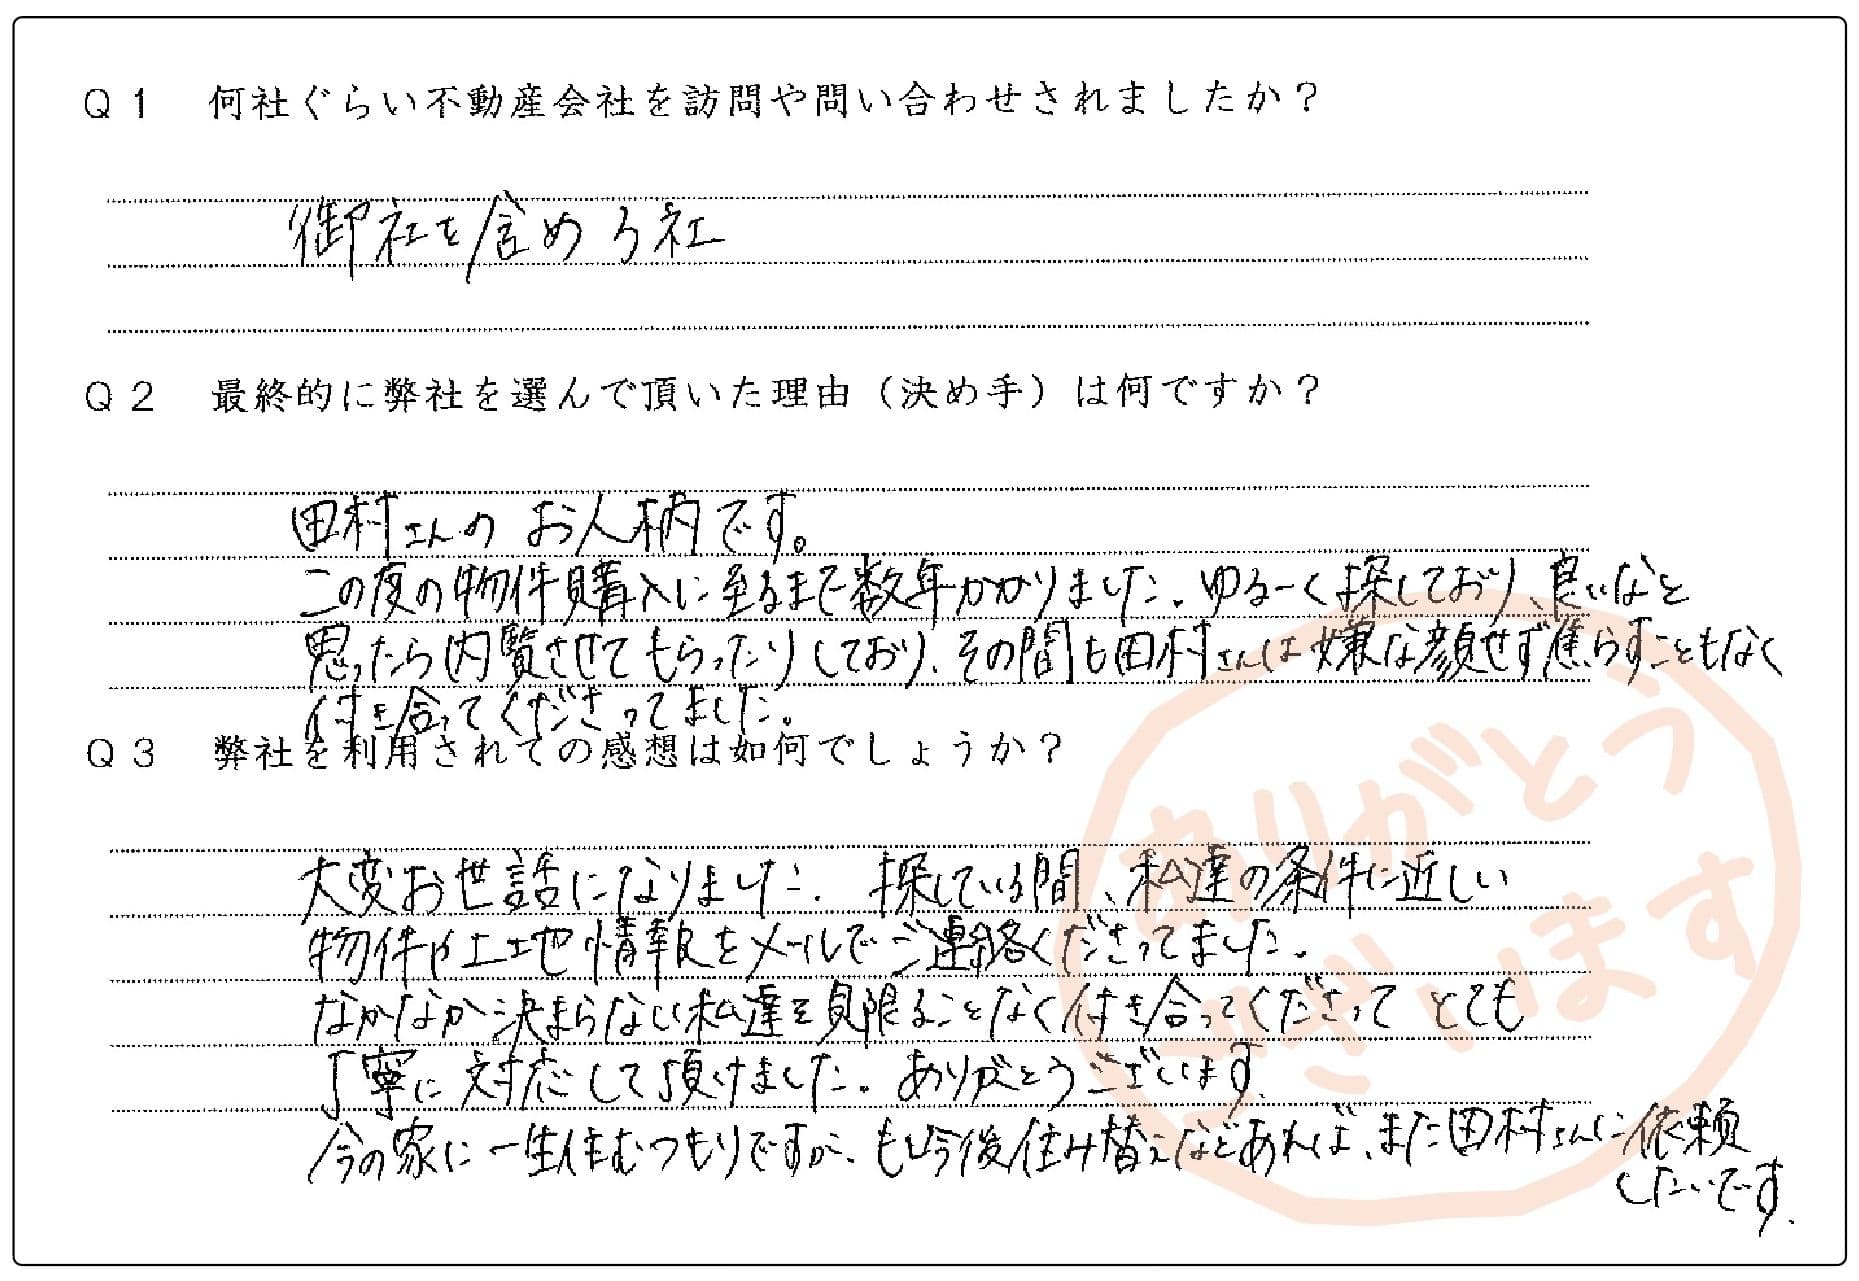 Q1 何社ぐらい不動産会社を訪問や問い合わせされましたか？
御社を含め3社
Q2 最終的に弊社を選んで頂いた理由（決め手）は何ですか？
田村さんの お人柄です。
この度の物件購入に至るまで数年かかりました。ゆるーく探しており、良いなと
思ったら内覧させてもらったりしており、その間も田村さんは嫌な顔せず焦らすこともなく
付き合ってくださってました。
Q3 弊社を利用されての感想は如何でしょうか？
大変お世話になりました。 探している間、私達の条件に近しい
物件や土地情報をメールでご連絡くださってました。
なかなか決まらない私達を見限ることなく付き合ってくださって とても
丁寧に対応して頂けました。ありがとうございます。
今の家に一生住むつもりですが、もし今後住み替えなどあれば、また田村さんに依頼
したいです。
ありがとう
ございます